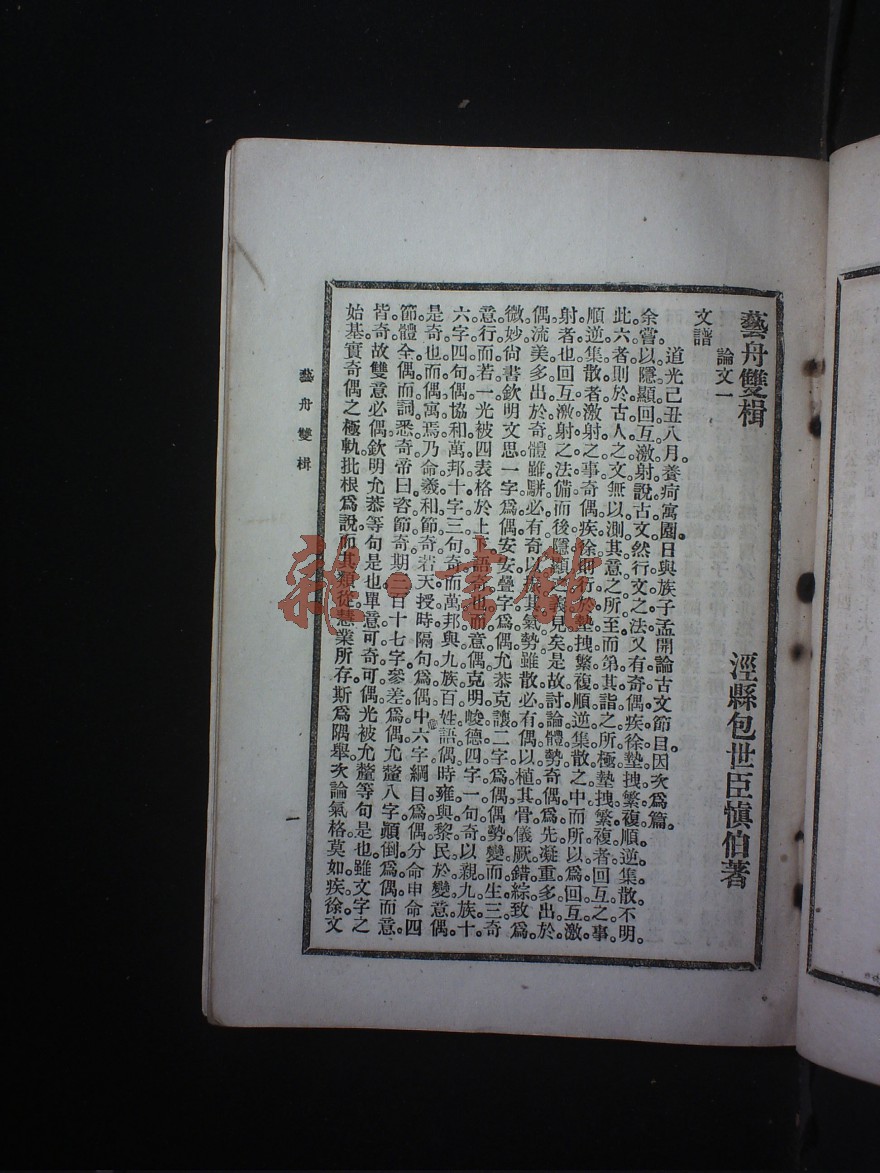 藝舟雙楫
涇縣包世臣慎伯著
論文一
文譜
道光己丑八月。養疴寓園。日與族子孟開論古文節目。因次爲篇。
余嘗以隱顯回互激射說古文。然行文之法。又有奇偶疾徐墊拽繁複順逆集散。不明
此六者。則於古人之文。無以測其意之所至。而第其詣之所極。墊拽繁複者。回互之事。
順逆集散者。激射之事。奇偶疾徐。則行於墊拽繁複順逆集散之中。而所以爲回互激
射者也。回互激射之法備。而後隱顯之義見矣。是故討論體勢。奇偶爲先。凝重多出於
偶。流美多出於奇。體雖駢必有奇以振其氣。勢雖散必有偶以植其骨。儀厥錯綜。致爲
微妙。尚書欽明文思。一字爲偶。安安疊字爲偶。允恭克讓。二字爲偶。偶勢變而生三。奇
意行而若一。光被四表。格於上下。語奇也而意偶。克明峻德。四字一句奇。以親九族。十
六字四句偶。協和萬邦。十字三句奇。而萬邦與九族百姓語偶。時雍與黎民於變意偶。
是奇也而偶寓焉。乃命羲和節奇。若天授時隔句爲偶。中六字綱目爲偶。分命申命四
節體全偶。而詞悉奇。帝曰咨節奇。期三百十七字。參差爲偶。允釐八字。顛倒爲偶。而意
皆奇。故雙意必偶。欽明允恭等句是也。單意可奇可偶。光被允釐等句是也。雖文字之
始基。實奇偶之極軌。批根爲說。而其類從。慧業所存。斯爲隅舉。次論氣格。莫如疾徐。文
藝舟雙楫
一
雜·書館